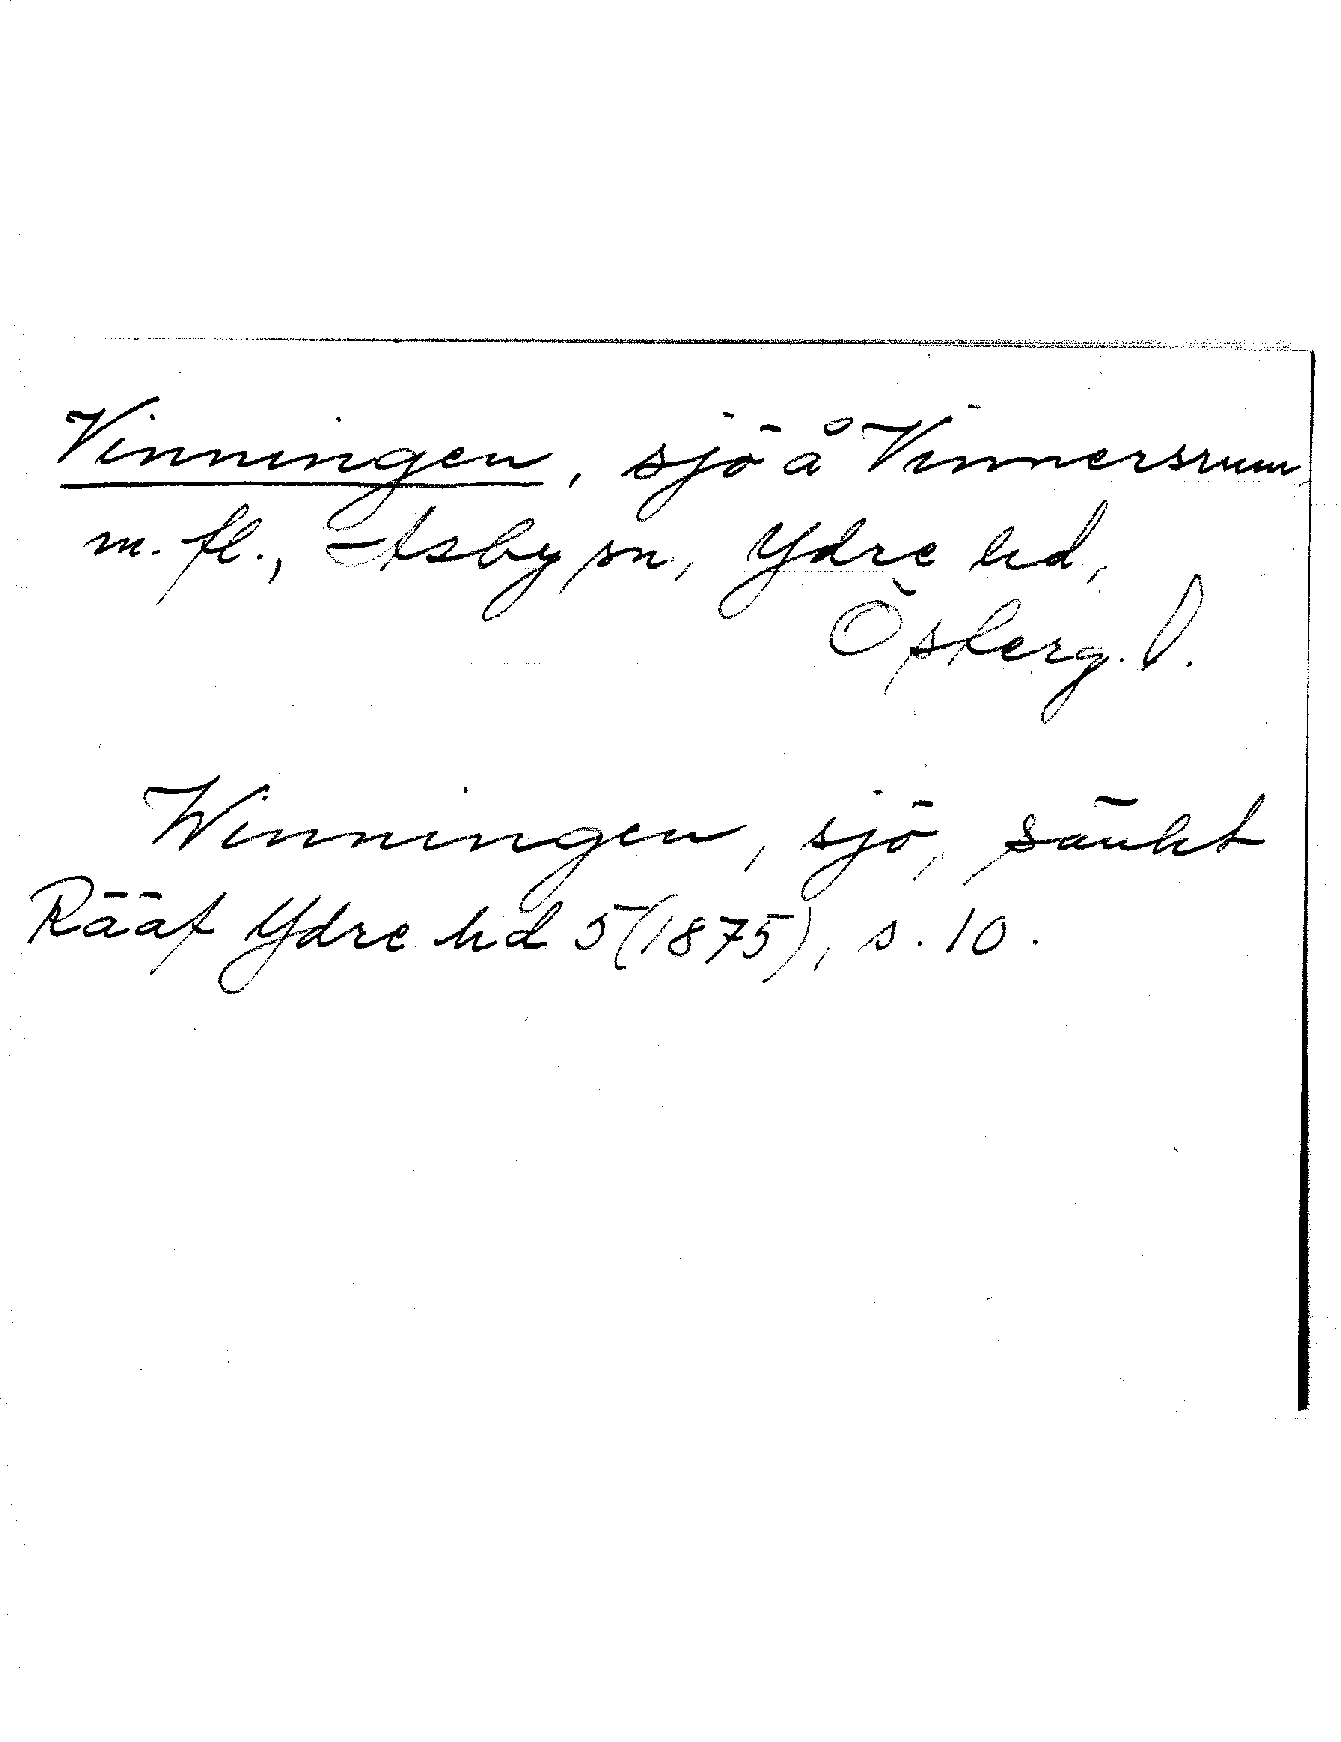 Vinningen, sjö å Vinnersrum
m. fl., Asby sn, Ydre hd,
Österg. l.
Winningen, sjö, sänkt
Rääf Ydre hd 5 (1875), s. 10.